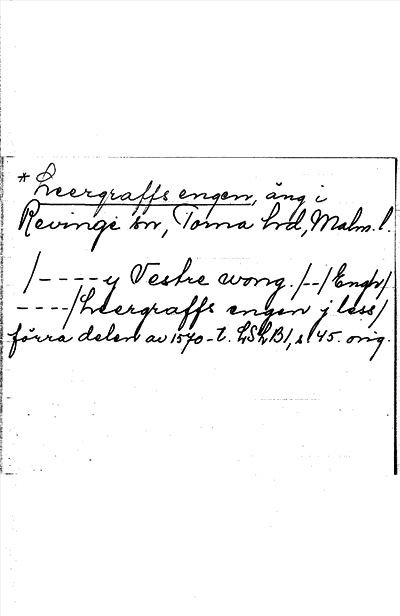 *Leergraffs engen, äng i
Revinge sn, Torna hd, Malm. l.
/----y Vestre wong. /--/ Engh/
----/Leergraffs engen j less/
förra delen av 1570-t. LSLB1, s 45. orig.